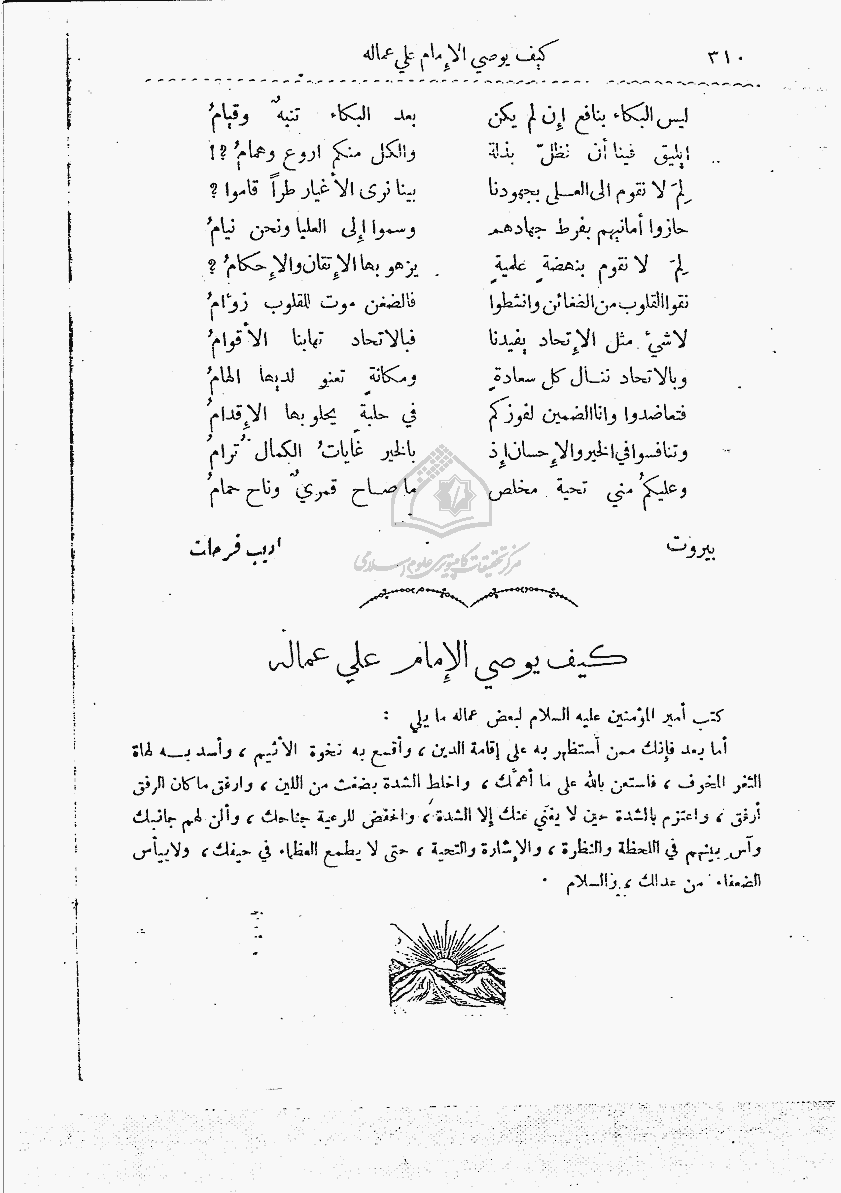 ٣١٠ كيف يوصي الإمام علي عماله
ليس البكاء بنافع إن لم يكن بعد البكاء تنبهٌ وقيامُ
ايليق فينا أن نظلّ بذلة والكل منكم اروع وهمامُ ؟!
لِمَ لا نقوم الى العلى بجهودنا بينا نرى الأغيار طراً قاموا ؟
حازوا أمانيهم بفرط جهادهم وسموا إلى العليا ونحن نيامُ
لِمَ لا نقوم بنهضةٍ علميةٍ يزهو بها الإتقان والإحكامُ ؟
نقوا القلوب من الضغائن وانشطوا فالضغن موت للقلوب زوءامُ
لا شيءَ مثل الإتحاد يفيدنا فبالاتحاد تهابنا الأقوامُ
وبالاتحاد ننال كل سعادةٍ ومكانةٍ تعنو لديها الهامُ
فتعاضدوا وانا الضمين لفوزكم في حلبةٍ يحلو بها الإقدامُ
وتنافسوا في الخير والإحسان إذ بالخير غاياتُ الكمال تُرامُ
وعليكمُ مني تحية مخلص ما صاح قمريٌ وناح حمامُ
بيروت اديب فرحات
مركز تحقيقات كامپيوترى علوم اسلامى
كيف يوصي الإمام علي عماله
كتب أمير المؤمنين عليه السلام لبعض عماله ما يلي :
أما بعد فإنك ممن أستظهر به على إقامة الدين ، وأقمع به نخوة الأثيم ، وأسد به لهاة
الثغر المخوف ، فاستعن بالله على ما أهمك ، واخلط الشدة بضغث من اللين ، وارفق ما كان الرفق
أرفق ، واعتزم بالشدة حين لا يغني عنك إلا الشدة ، واخفض للرعية جناحك ، وألن لهم جانبك
وآس بينهم في اللحظة والنظرة ، والإشارة والتحية ، حتى لا يطمع العظماء في حيفك ، ولا ييأس
الضعفاء من عدلك ، والسلام .